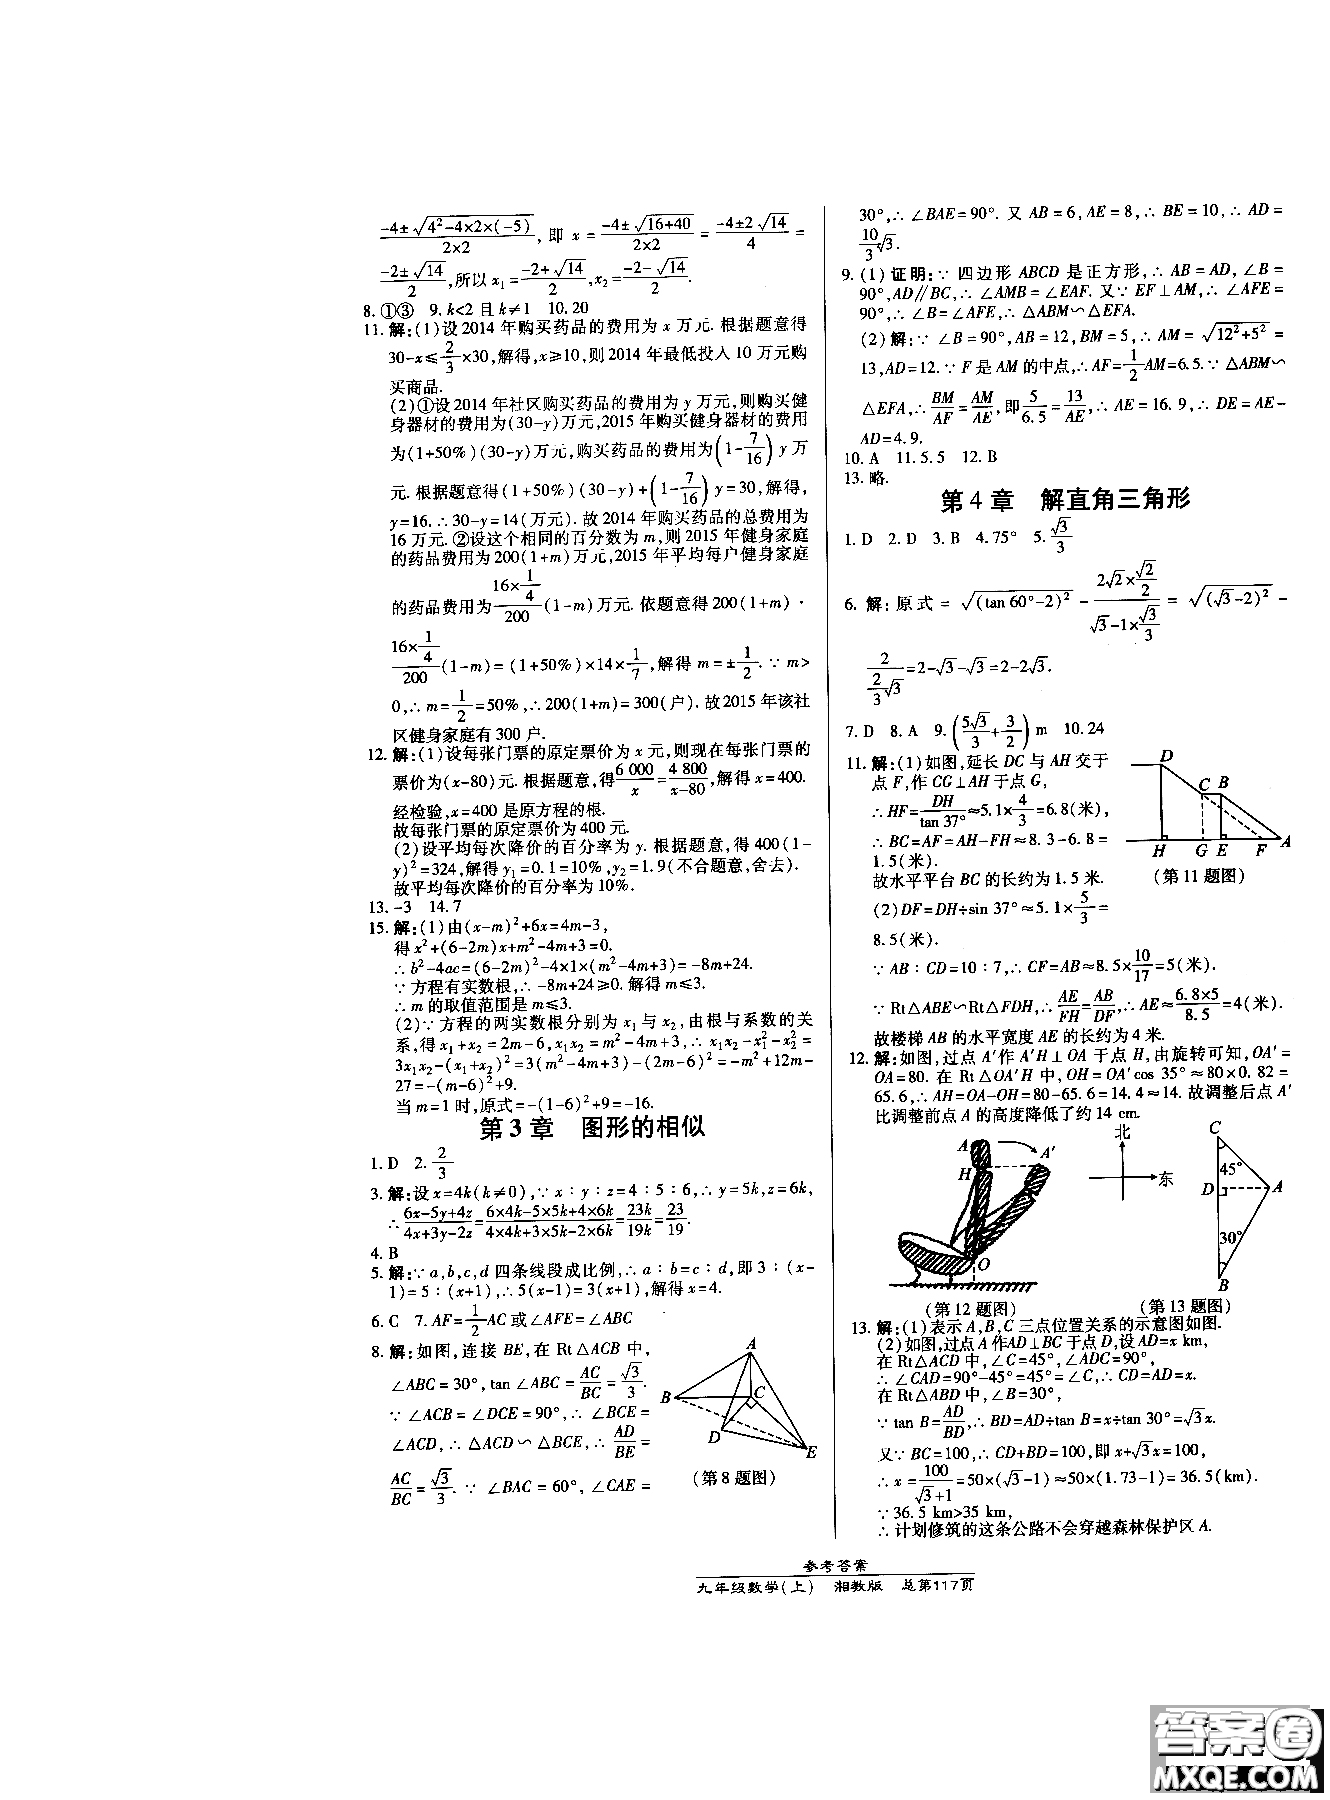 (-4±√(4²-4×2×(-5)))/(2×2), 即 x=(-4±√(16+40))/(2×2)=(-4±2√14)/4=
(-2±√14)/2,所以 x₁=(-2+√14)/2,x₂=(-2-√14)/2.
8.①③  9.k<2 且 k≠1  10.20
11.解:(1)设 2014 年购买药品的费用为 x 万元.根据题意得
30-x≤2/3×30,解得,x≥10,则 2014 年最低投入 10 万元购
买商品.
(2)①设 2014 年社区购买药品的费用为 y 万元,则购买健
身器材的费用为(30-y)万元,2015 年购买健身器材的费用
为(1+50%)(30-y)万元,购买药品的费用为(1-7/16)y 万
元.根据题意得(1+50%)(30-y)+(1-7/16)y=30,解得,
y=16.∴30-y=14(万元).故 2014 年购买药品的总费用为
16 万元.②设这个相同的百分数为 m,则 2015 年健身家庭
的药品费用为 200(1+m)万元,2015 年平均每户健身家庭
的药品费用为(16×1/4)/200(1-m)万元.依题意得 200(1+m)·
(16×1/4)/200(1-m)=(1+50%)×14×1/7,解得 m=±1/2.∵m>
0,∴m=1/2=50%,∴200(1+m)=300(户).故 2015 年该社
区健身家庭有 300 户.
12.解:(1)设每张门票的原定票价为 x 元,则现在每张门票的
票价为(x-80)元.根据题意,得6 000/x=4 800/(x-80),解得 x=400.
经检验,x=400 是原方程的根.
故每张门票的原定票价为 400 元.
(2)设平均每次降价的百分率为 y.根据题意,得 400(1-
y)²=324,解得 y₁=0.1=10%,y₂=1.9(不合题意,舍去).
故平均每次降价的百分率为 10%.
13.-3  14.7
15.解:(1)由(x-m)²+6x=4m-3,
得 x²+(6-2m)x+m²-4m+3=0.
∴b²-4ac=(6-2m)²-4×1×(m²-4m+3)=-8m+24.
∵方程有实数根,∴-8m+24≥0.解得 m≤3.
∴m 的取值范围是 m≤3.
(2)∵方程的两实数根分别为 x₁ 与 x₂,由根与系数的关
系,得 x₁+x₂=2m-6,x₁x₂=m²-4m+3,∴x₁x₂-x₁²-x₂²=
3x₁x₂-(x₁+x₂)²=3(m²-4m+3)-(2m-6)²=-m²+12m-
27=-(m-6)²+9.
当 m=1 时,原式=-(1-6)²+9=-16.
第 3 章  图形的相似
1.D  2.2/3
3.解:设 x=4k(k≠0),∵x∶y∶z=4∶5∶6,∴y=5k,z=6k,
∴(6x-5y+4z)/(4x+3y-2z)=(6×4k-5×5k+4×6k)/(4×4k+3×5k-2×6k)=23k/19k=23/19.
4.B
5.解:∵a,b,c,d 四条线段成比例,∴a∶b=c∶d,即 3∶(x-
1)=5∶(x+1),∴5(x-1)=3(x+1),解得 x=4.
6.C  7.AF=1/2AC 或∠AFE=∠ABC
8.解:如图,连接 BE,在 Rt△ACB 中,
∠ABC=30°,tan∠ABC=AC/BC=√3/3.
∵∠ACB=∠DCE=90°,∴∠BCE=
∠ACD,∴△ACD∽△BCE,∴AD/BE=
AC/BC=√3/3.∵∠BAC=60°,∠CAE=
A
B
C
D
E
(第 8 题图)
30°,∴∠BAE=90°.又 AB=6,AE=8,∴BE=10,∴AD=
10/3√3.
9.(1)证明:∵四边形 ABCD 是正方形,∴AB=AD,∠B=
90°,AD∥BC,∴∠AMB=∠EAF.又∵EF⊥AM,∴∠AFE=
90°,∴∠B=∠AFE,∴△ABM∽△EFA.
(2)解:∵∠B=90°,AB=12,BM=5,∴AM=√(12²+5²)=
13,AD=12.∵F 是 AM 的中点,∴AF=1/2AM=6.5.∵△ABM∽
△EFA,∴BM/AF=AM/AE,即5/6.5=13/AE,∴AE=16.9,∴DE=AE-
AD=4.9.
10.A  11.5.5  12.B
13.略.
第 4 章  解直角三角形
1.D  2.D  3.B  4.75°  5.√3/3
6.解:原式=√(tan 60°-2)²-(2√2×√2/2)/(√3-1×√3/3)=√(√3-2)²-
2/(2/3√3)=2-√3-√3=2-2√3.
7.D  8.A  9.(5√3/3+3/2)m  10.24
11.解:(1)如图,延长 DC 与 AH 交于
点 F,作 CG⊥AH 于点 G,
∴HF=DH/tan 37°≈5.1×4/3=6.8(米),
∴BC=AF=AH-FH≈8.3-6.8=
1.5(米).
故水平平台 BC 的长约为 1.5 米.
(2)DF=DH÷sin 37°≈5.1×5/3=
8.5(米).
D
C B
H G E F A
(第 11 题图)
∵AB∶CD=10∶7,∴CF=AB≈8.5×10/17=5(米).
∵Rt△ABE∽Rt△FDH,∴AE/FH=AB/DF,∴AE≈(6.8×5)/8.5=4(米).
故楼梯 AB 的水平宽度 AE 的长约为 4 米.
12.解:如图,过点 A′作 A′H⊥OA 于点 H,由旋转可知,OA′=
OA=80.在 Rt△OA′H 中,OH=OA′cos 35°≈80×0.82=
65.6,∴AH=OA-OH=80-65.6=14.4≈14.故调整后点 A′
比调整前点 A 的高度降低了约 14 cm.
A
A′
H
O
(第 12 题图)
北
东
C
45°
D
A
30°
B
(第 13 题图)
13.解:(1)表示 A,B,C 三点位置关系的示意图如图.
(2)如图,过点 A 作AD⊥BC 于点 D,设 AD=x km,
在 Rt△ACD 中,∠C=45°,∠ADC=90°,
∴∠CAD=90°-45°=45°=∠C,∴CD=AD=x.
在 Rt△ABD 中,∠B=30°,
∵tan B=AD/BD,∴BD=AD÷tan B=x÷tan 30°=√3x.
又∵BC=100,∴CD+BD=100,即 x+√3x=100,
∴x=100/(√3+1)=50×(√3-1)≈50×(1.73-1)=36.5(km).
∵36.5 km>35 km,
∴计划修筑的这条公路不会穿越森林保护区 A.
参考答案
九年级数学(上)  湘教版  总第117页
答案圈
MXQE.COM